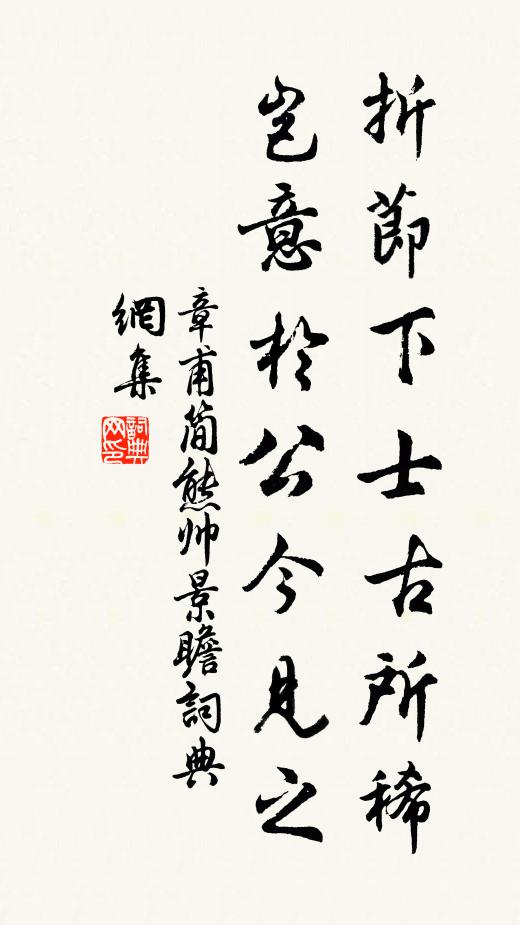 折節下士古所稀
豈意於公今見之
章甫簡熊帅景瞻詞典
網集
詞典
网印